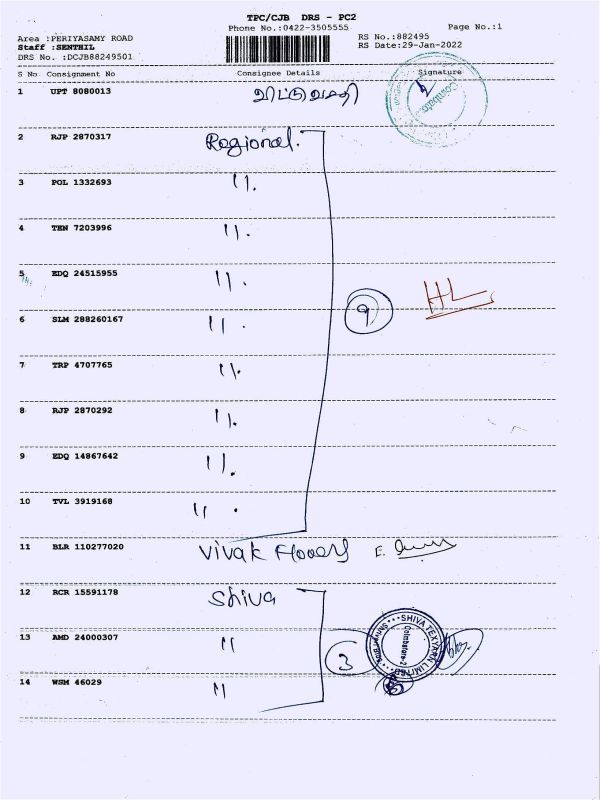 TPC/CJB DRS - PC2
Phone No.:0422-3505555
Page No.:1
Area :PERIYASAMY ROAD
Staff :SENTHIL
DRS No. :DCJB88249501
RS No.:882495
RS Date:29-Jan-2022
S No Consignment No Consignee Details Signature
1 UPT 8080013
Coimbatore
2 RJP 2870317 Regional.
3 POL 1332693 ".
4 TEN 7203996 ".
5 EDQ 24515955 ".
6 SLM 288260167 ".
9
7 TRP 4707765 ".
8 RJP 2870292 ".
9 EDQ 14867642 ".
10 TVL 3919168 ".
11 BLR 110277020 Vivak
12 RCR 15591178 Shiva
13 AMD 24000307 "
3
SHIVA TEXYARN LIMITED
Coimbatore-2
14 WSM 46029 "